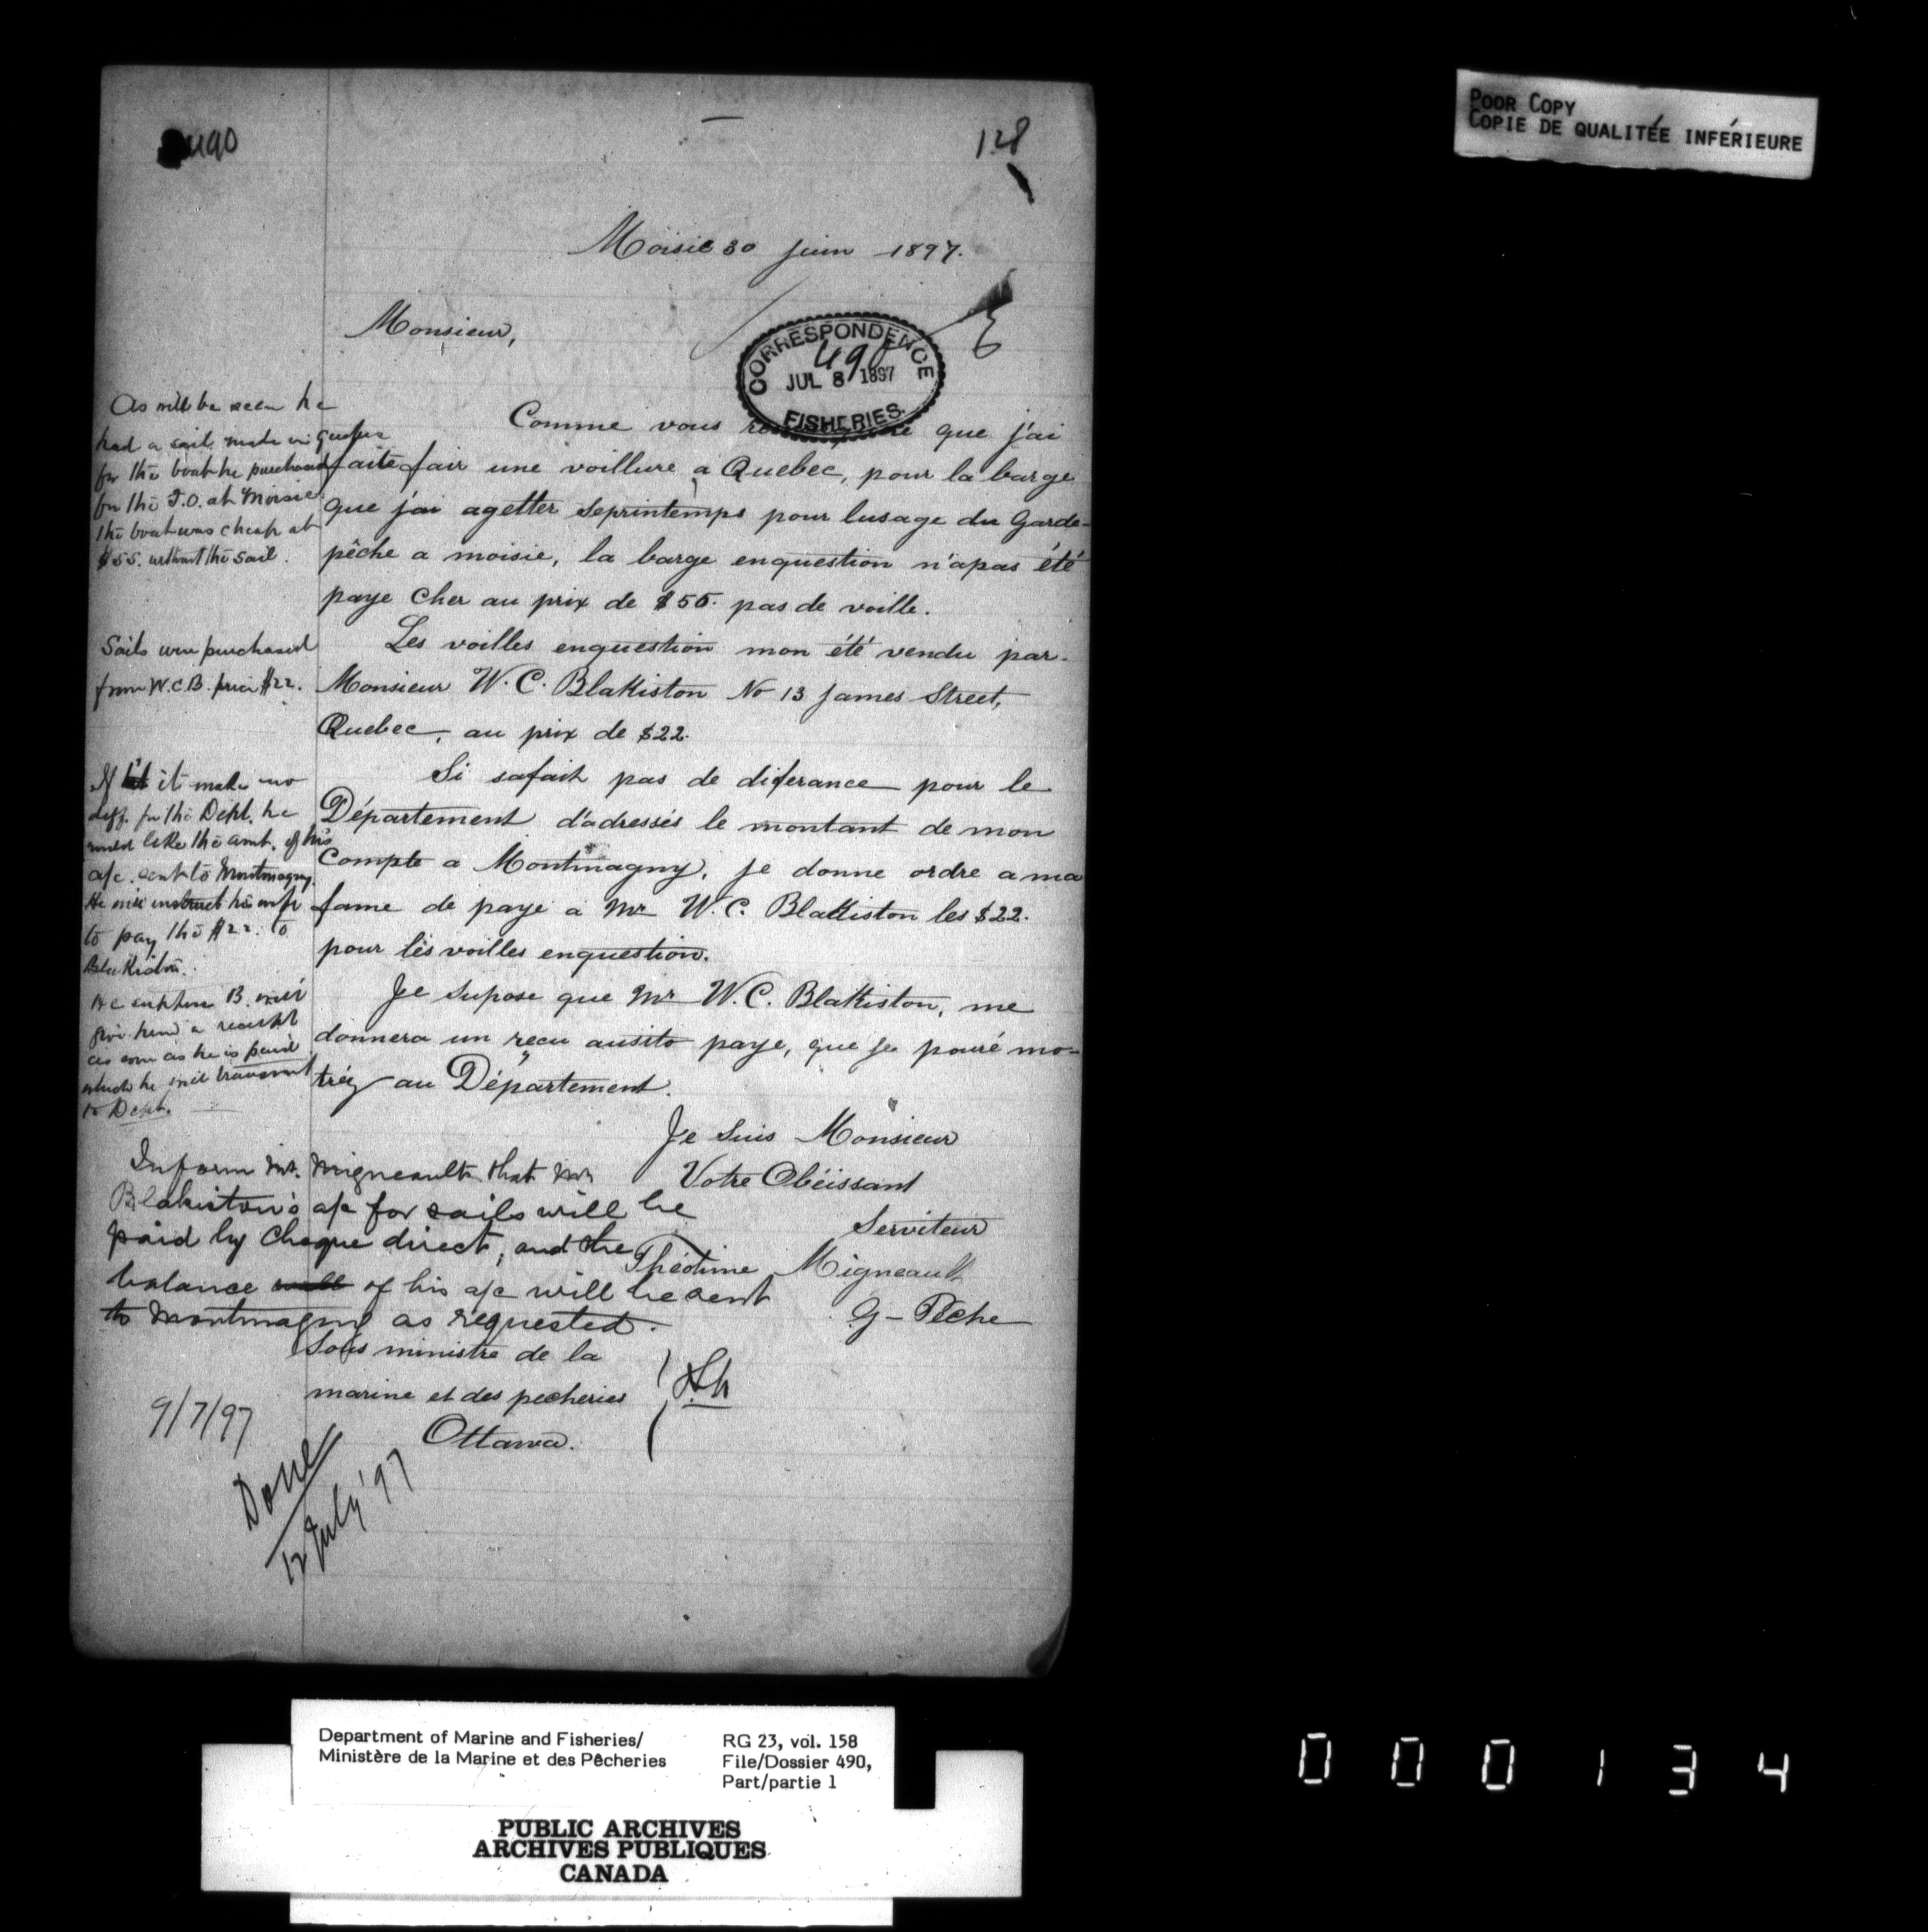 490
128
POOR COPY
COPIE DE QUALITÉE INFÉRIEURE
Moisie 30 juin 1897.
Monsieur,
CORRESPONDENCE
490
JUL 8 1897
FISHERIES.
Comme vous que j'ai
faite fair une voillure a Quebec, pour la barge
que j'ai agetter seprintemps pour lusage du Garde-
pêche a moisie, la barge enquestion n'apas été
paye cher au prix de $55. pas de voille.
Les voilles enquestion mon été vendu par.
Monsieur W. C. Blakiston No 13 James Street,
Quebec, au prix de $22.
Si safait pas de diferance pour le
Département d'adressés le montant de mon
Compte a Montmagny, je donne ordre a ma
fame de paye a Mr W. C. Blakiston les $22.
pour les voilles enquestion.
Je supose que Mr W. C. Blakiston, me
donnera un reçu ausito paye, que je pouré mo-
tréz au Département.
Je suis Monsieur
Votre Obéissant
Serviteur
Théotime Migneault
G-Pêche
Sous ministre de la
marine et des pecheries
Ottawa.
As will be seen he
had a sail made in Quebec
for the boat he purchased
for the F.O. at Moisie
the boat was cheap at
$55. without the sail.
Sails were purchased
from W.C.B. price $22.
If it make no
diff. for the Dept. he
would like the amt. of his
a/c. sent to Montmagny.
He will instruct his wife
to pay the $22. to
Blakiston.
He suppose B. will
give him a receipt
as soon as he is paid
which he will transmit
to Dept.
Inform Mr. Migneault that Mr
Blakiston's a/c for sails will be
paid by Cheque direct, and the
balance of his a/c will be sent
to Montmagny as requested.
9/7/97
Done
12 July '97
Department of Marine and Fisheries/
Ministère de la Marine et des Pêcheries
RG 23, vol. 158
File/Dossier 490,
Part/partie 1
PUBLIC ARCHIVES
ARCHIVES PUBLIQUES
CANADA
000134